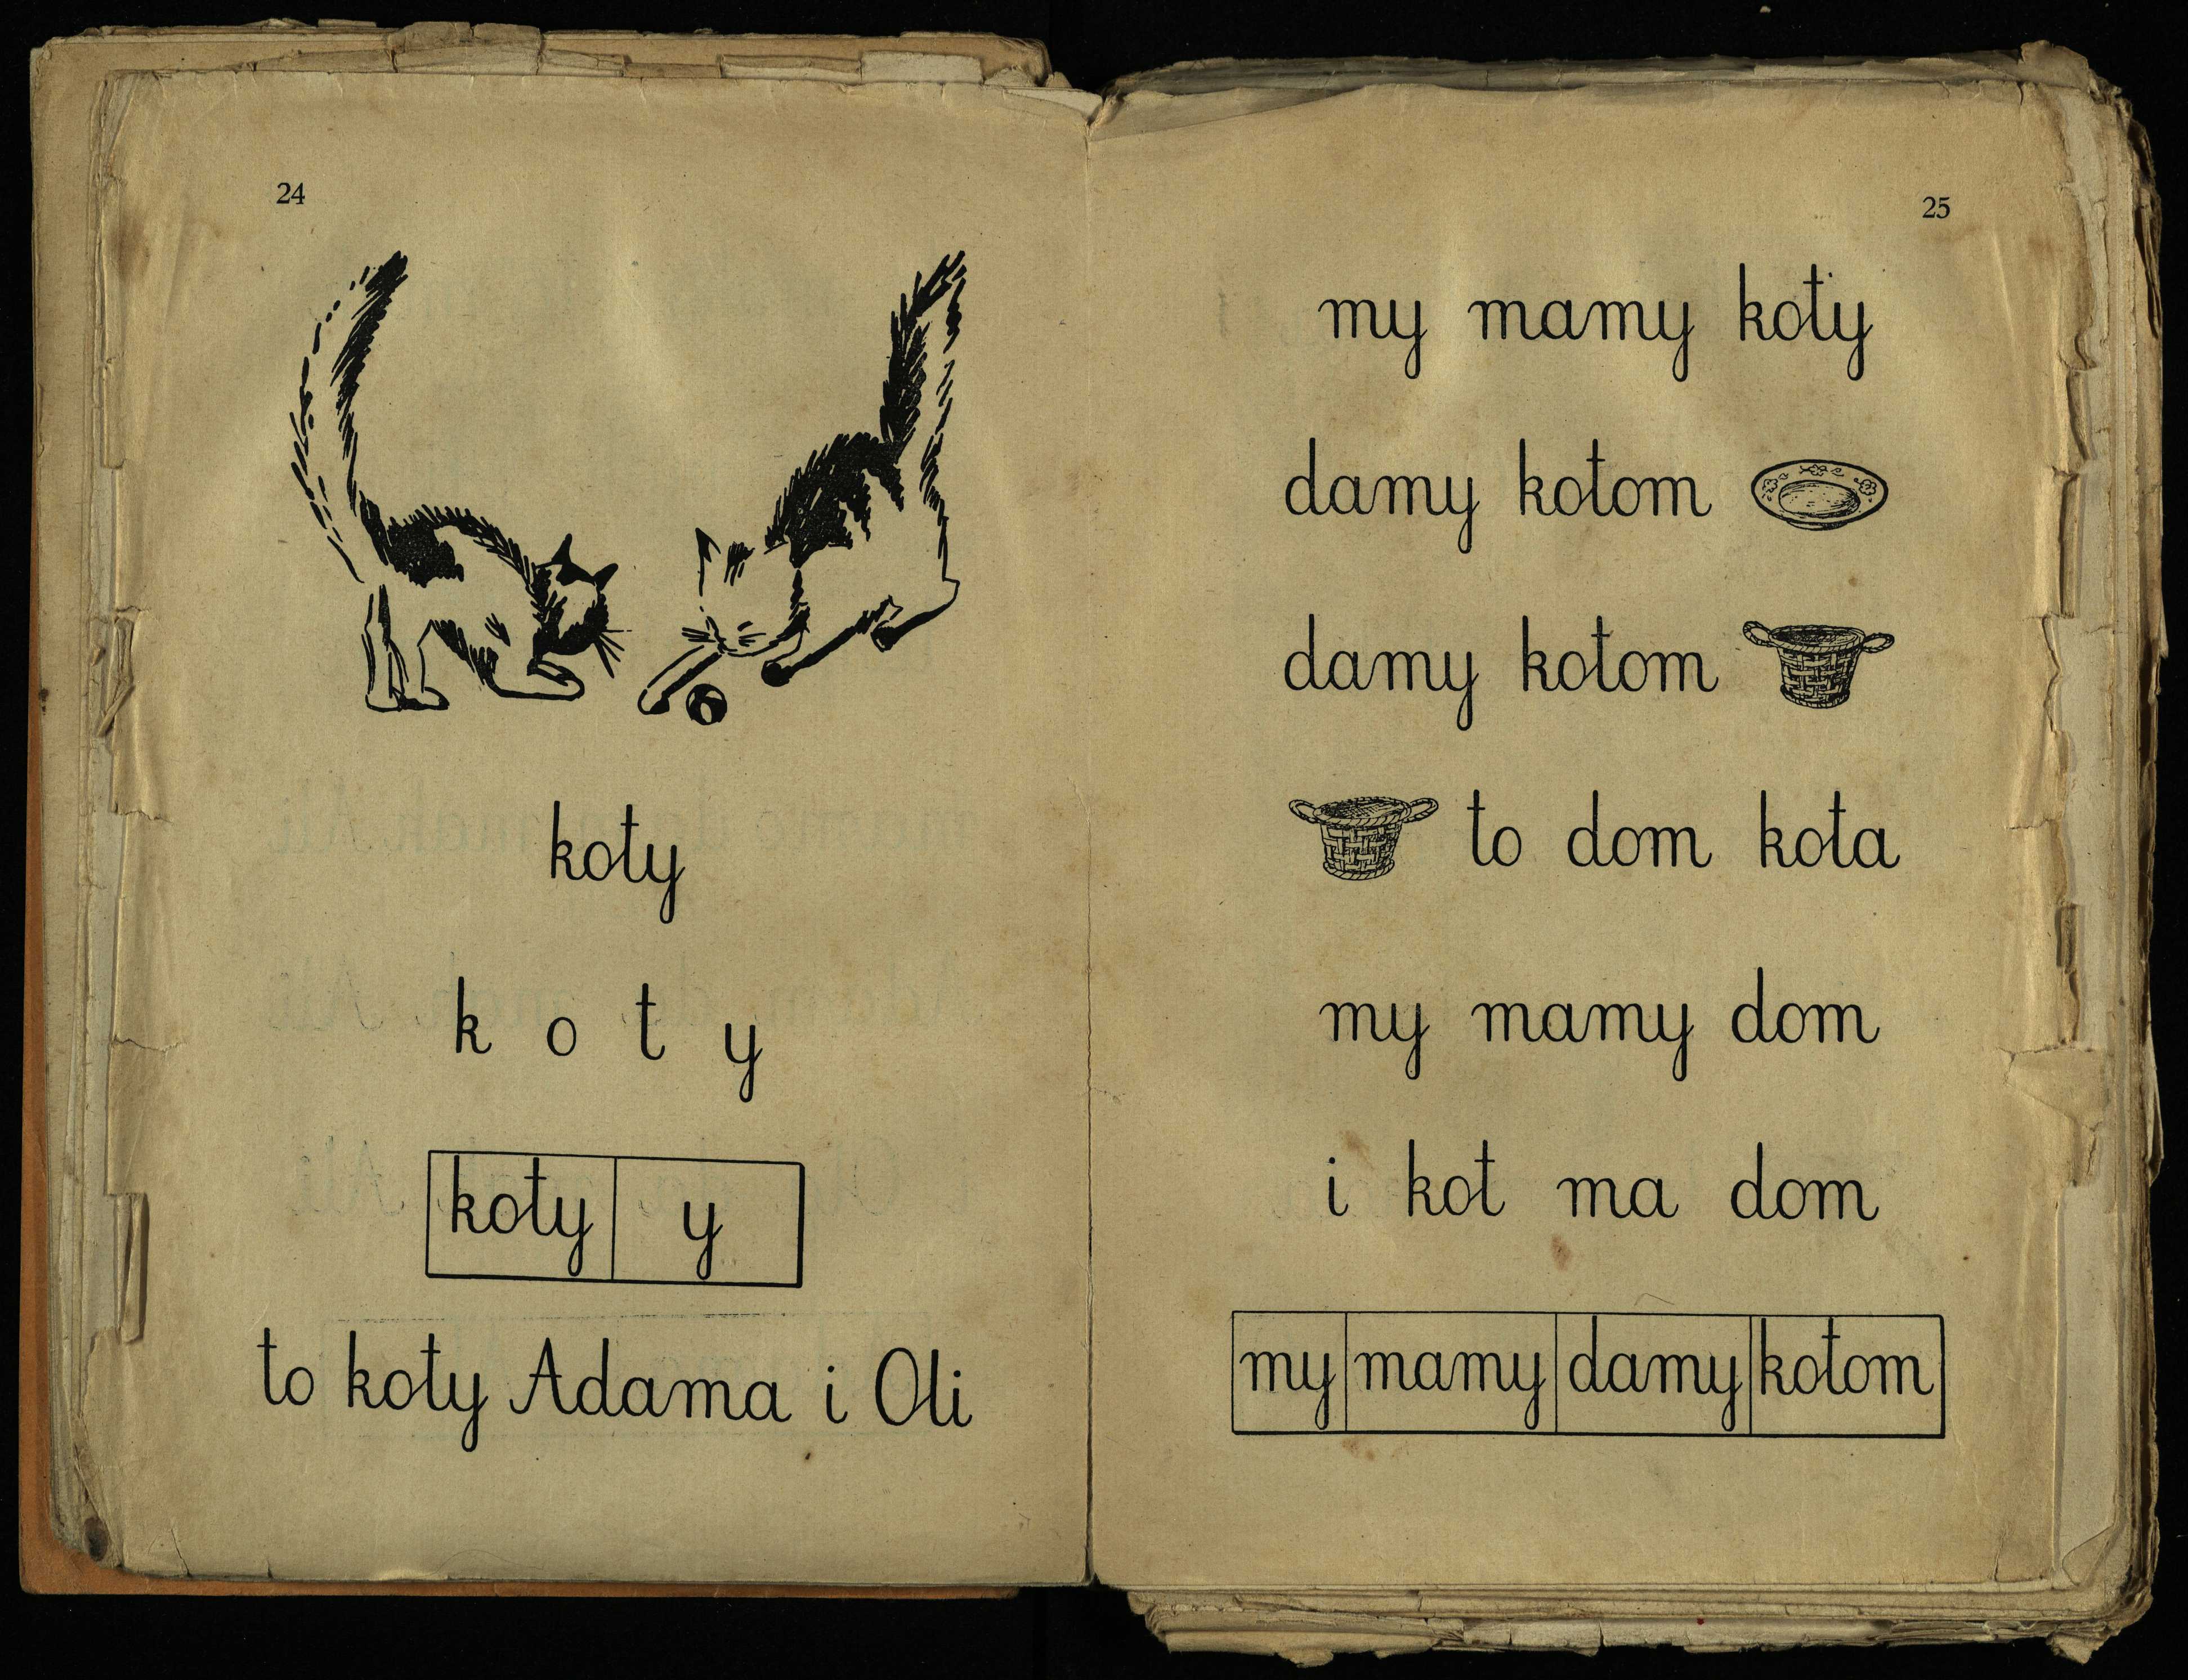 24
koty
k o t y
koty y
to koty Adama i Oli
25
my mamy koty
damy kotom
damy kotom
to dom kota
my mamy dom
i kot ma dom
my mamy damy kotom